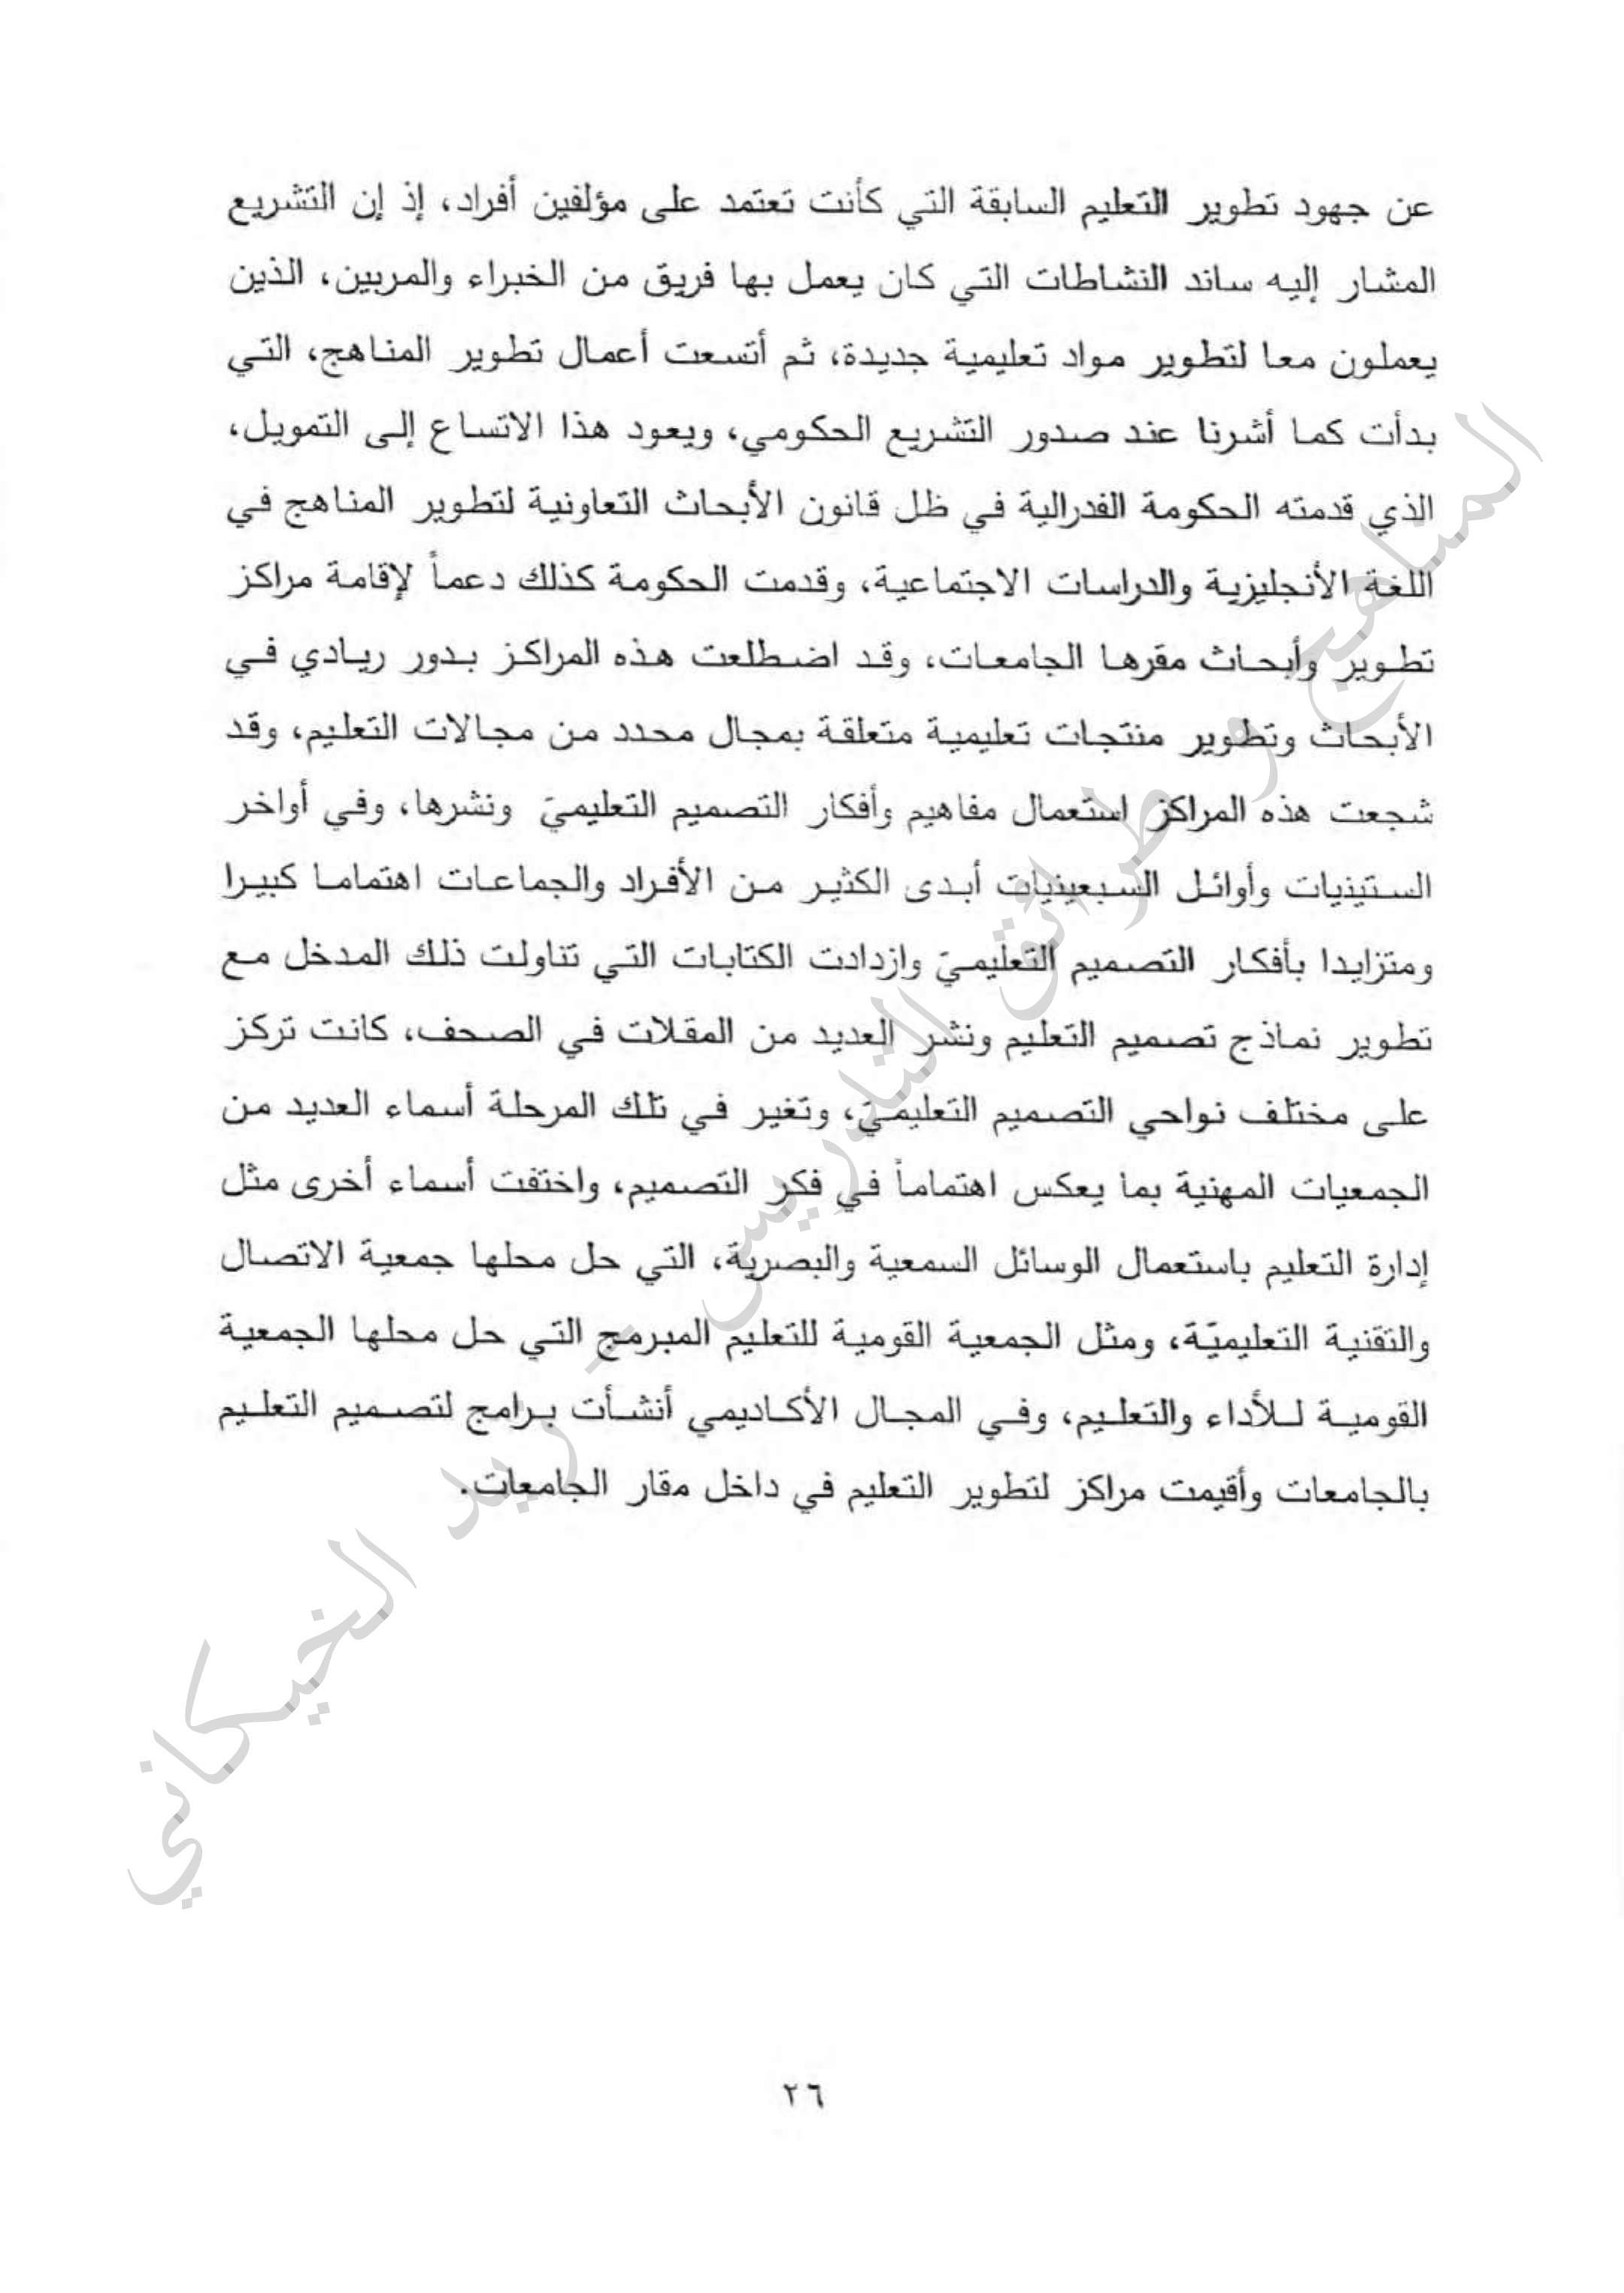 عن جهود تطوير التعليم السابقة التي كأنت تعتمد على مؤلفين أفراد، إذ إن التشريع
المشار إليه ساند النشاطات التي كان يعمل بها فريق من الخبراء والمربين، الذين
يعملون معا لتطوير مواد تعليمية جديدة، ثم أتسعت أعمال تطوير المناهج، التي
بدأت كما أشرنا عند صدور التشريع الحكومي، ويعود هذا الاتساع إلى التمويل،
الذي قدمته الحكومة الفدرالية في ظل قانون الأبحاث التعاونية لتطوير المناهج في
اللغة الأنجليزية والدراسات الاجتماعية، وقدمت الحكومة كذلك دعماً لإقامة مراكز
تطوير وأبحاث مقرها الجامعات، وقد اضطلعت هذه المراكز بدور ريادي في
الأبحاث وتطوير منتجات تعليمية متعلقة بمجال محدد من مجالات التعليم، وقد
شجعت هذه المراكز استعمال مفاهيم وأفكار التصميم التعليميَ ونشرها، وفي أواخر
الستينيات وأوائل السبعينيات أبدى الكثير من الأفراد والجماعات اهتماما كبيرا
ومتزايدا بأفكار التصميم التعليميَ وازدادت الكتابات التي تناولت ذلك المدخل مع
تطوير نماذج تصميم التعليم ونشر العديد من المقلات في الصحف، كانت تركز
على مختلف نواحي التصميم التعليميَ، وتغير في تلك المرحلة أسماء العديد من
الجمعيات المهنية بما يعكس اهتماماً في فكر التصميم، واختفت أسماء أخرى مثل
إدارة التعليم باستعمال الوسائل السمعية والبصرية، التي حل محلها جمعية الاتصال
والتقنية التعليميّة، ومثل الجمعية القومية للتعليم المبرمج التي حل محلها الجمعية
القومية للأداء والتعليم، وفي المجال الأكاديمي أنشأت برامج لتصميم التعليم
بالجامعات وأقيمت مراكز لتطوير التعليم في داخل مقار الجامعات.
المناهج وطرائق التدريس - ريد الخيكاني
٢٦